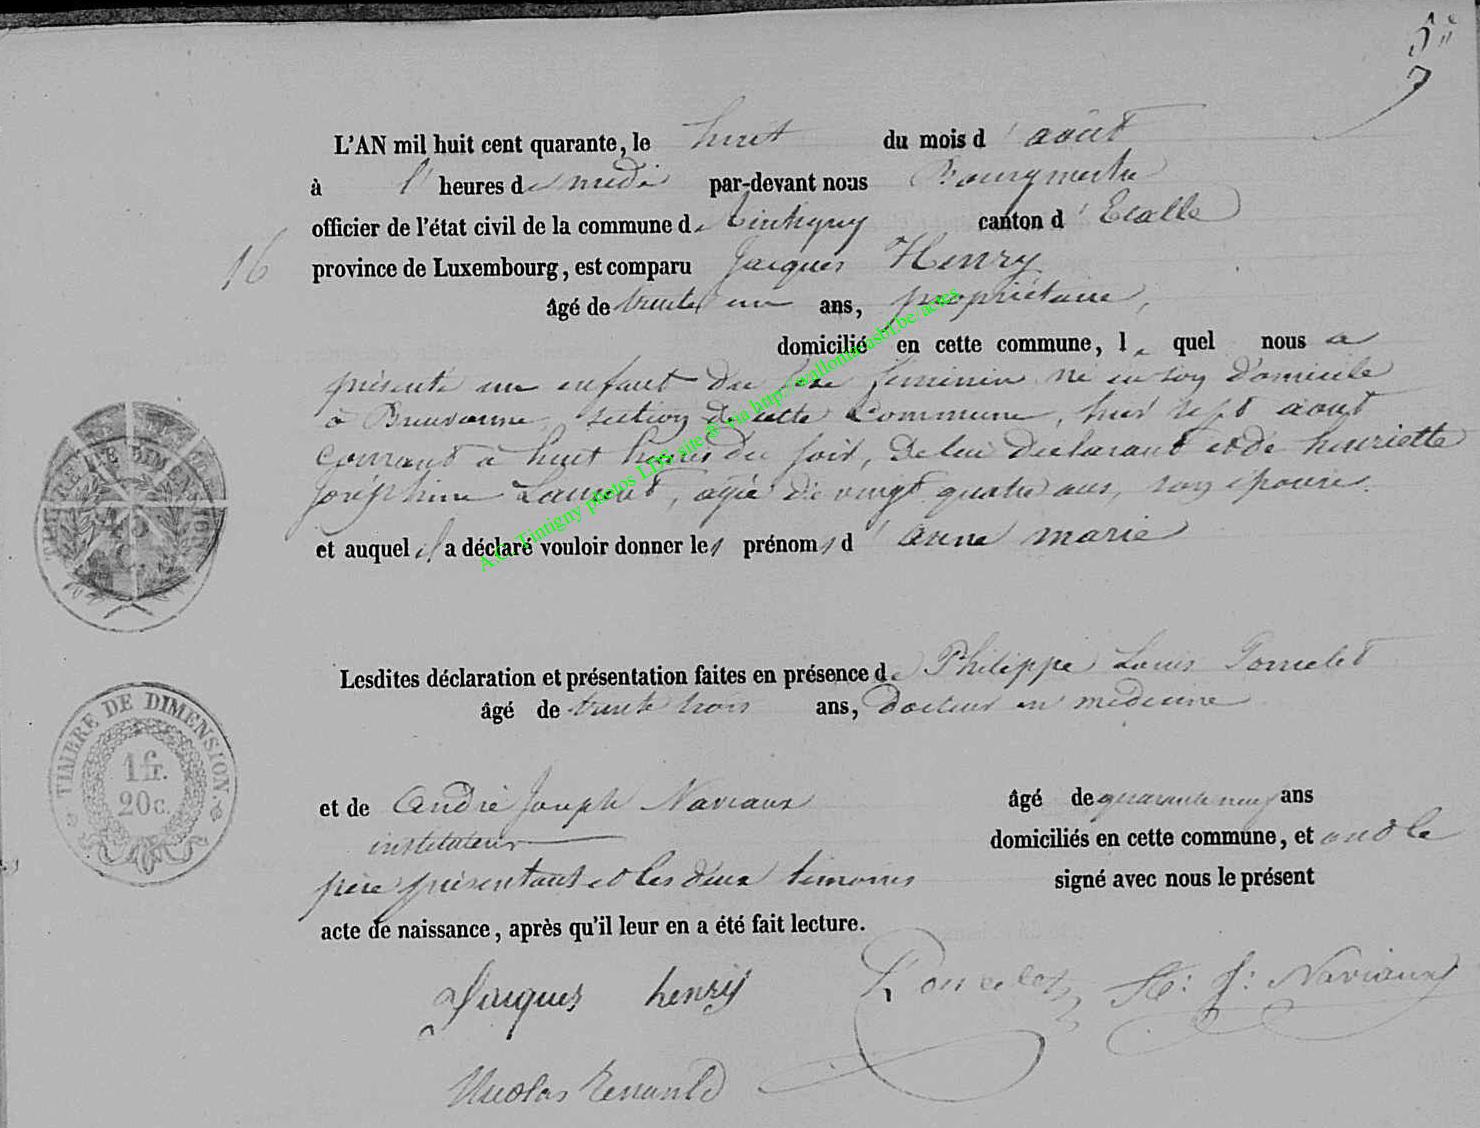 L'AN mil huit cent quarante, le huit du mois d'août
à l' heures de midi par-devant nous Bourgmestre
officier de l'état civil de la commune de Tintigny canton d'Etalle
16 province de Luxembourg, est comparu Jacques Henry
âgé de trente un ans, propriétaire,
domicilié en cette commune, le quel nous a
présenté un enfant du sexe féminin né en son domicile
à Breuvanne section de cette commune, hier sept aout
courant à huit heures du soir, de lui déclarant et de henriette
joséphine Laurent, agée de vingt quatre ans, son épouse.
et auquel il a déclaré vouloir donner les prénoms d'anne marie
Lesdites déclaration et présentation faites en présence de Philippe Louis Poncelet
âgé de trente trois ans, Docteur en médecine
et de André Joseph Naviaux âgé de quarante neuf ans
instituteur domiciliés en cette commune, et ont le
père présentant et les deux témoins signé avec nous le présent
acte de naissance, après qu'il leur en a été fait lecture.
Jacques henry Poncelet A: J: Naviaux
Nicolas Renauld
TIMBRE DE DIMENSION
45
C.
TIMBRE DE DIMENSION.
1 fr.
20 c.
A.C. Tintigny photos LDS site @ via http://wallonica.asbl.be/actes